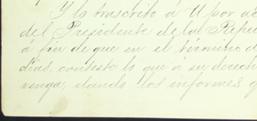 Y lo trascribo á U por
del Presidente de la Repu
á fin de que en el término d
días, conteste lo que á su derech
venga, dando los informes q